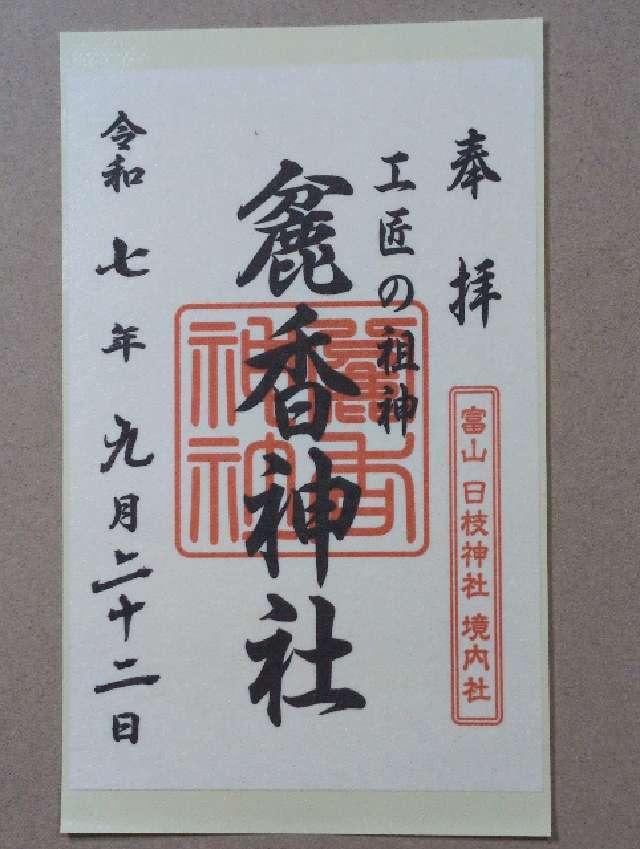 奉拝
富山 日枝神社 境内社
工匠の祖神
麁香神社
令和七年九月二十二日